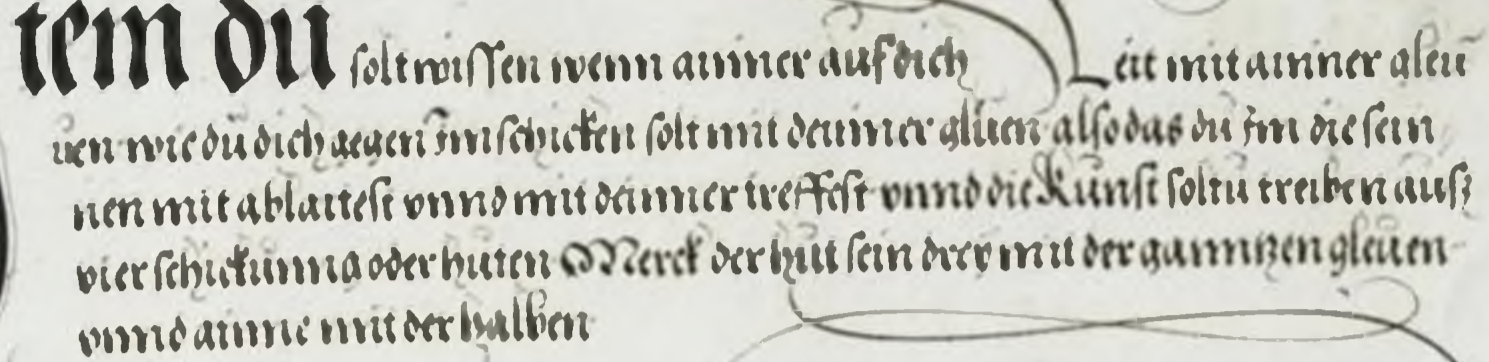 tem du solt wissen wenn ainner auf dich Leit mit ainner gleü
uen wie dü dich gegen im schicken solt mit deinner glüen also das du im die sein
nen mit ablaittest vnnd mit deinner treffest vnnd die Kunst soltu treiben auß
vier schickünng oder huten Merck der hüt sein drey mit der ganntzen gleuen
vnnd ainne mit der halben